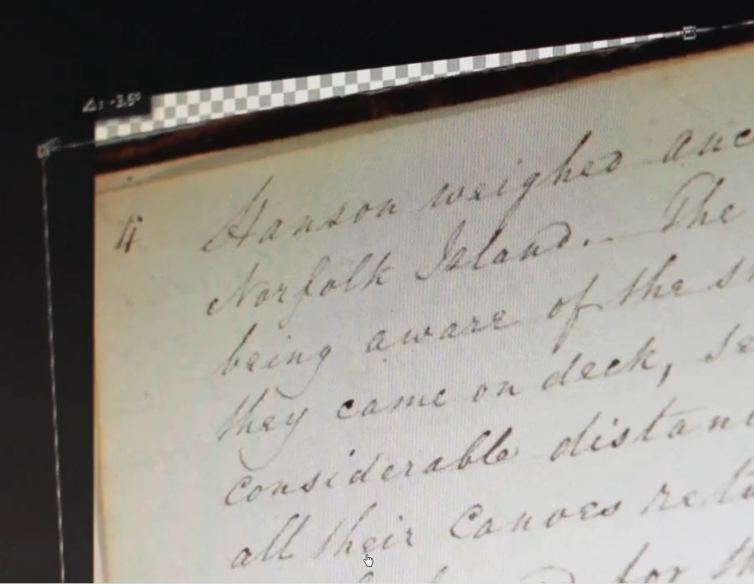 ∠: -3.5°
4 Hanson weighed anc
Norfolk Island. The
being aware of the s
they came on deck, se
considerable distan
all their Canoes re
for th